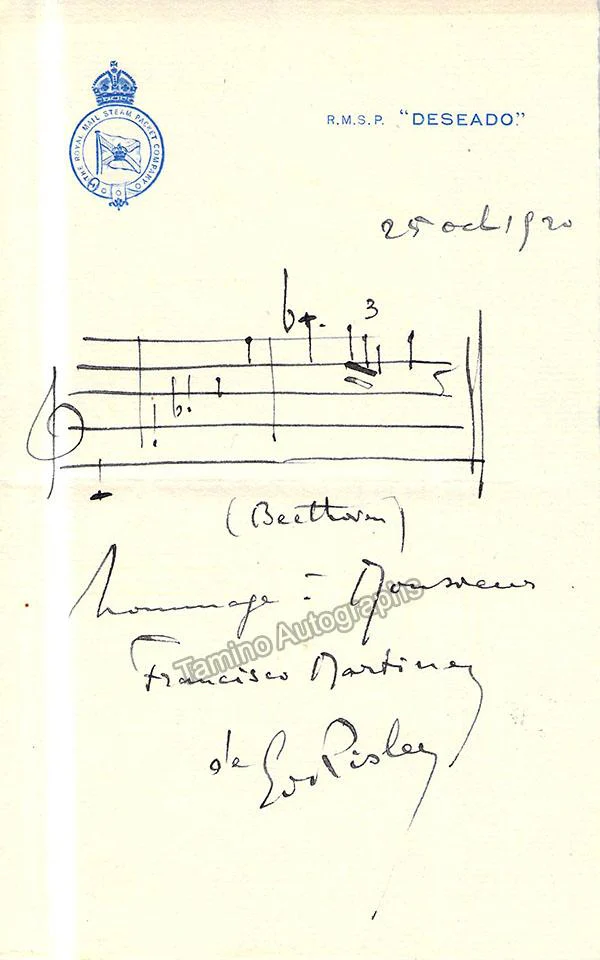 THE ROYAL MAIL STEAM PACKET COMPANY
R.M.S.P. "DESEADO"
25 oct 1920
3
(Beethoven)
hommage à Monsieur
Francisco Martinez
de Ed Risler
Tamino Autographs